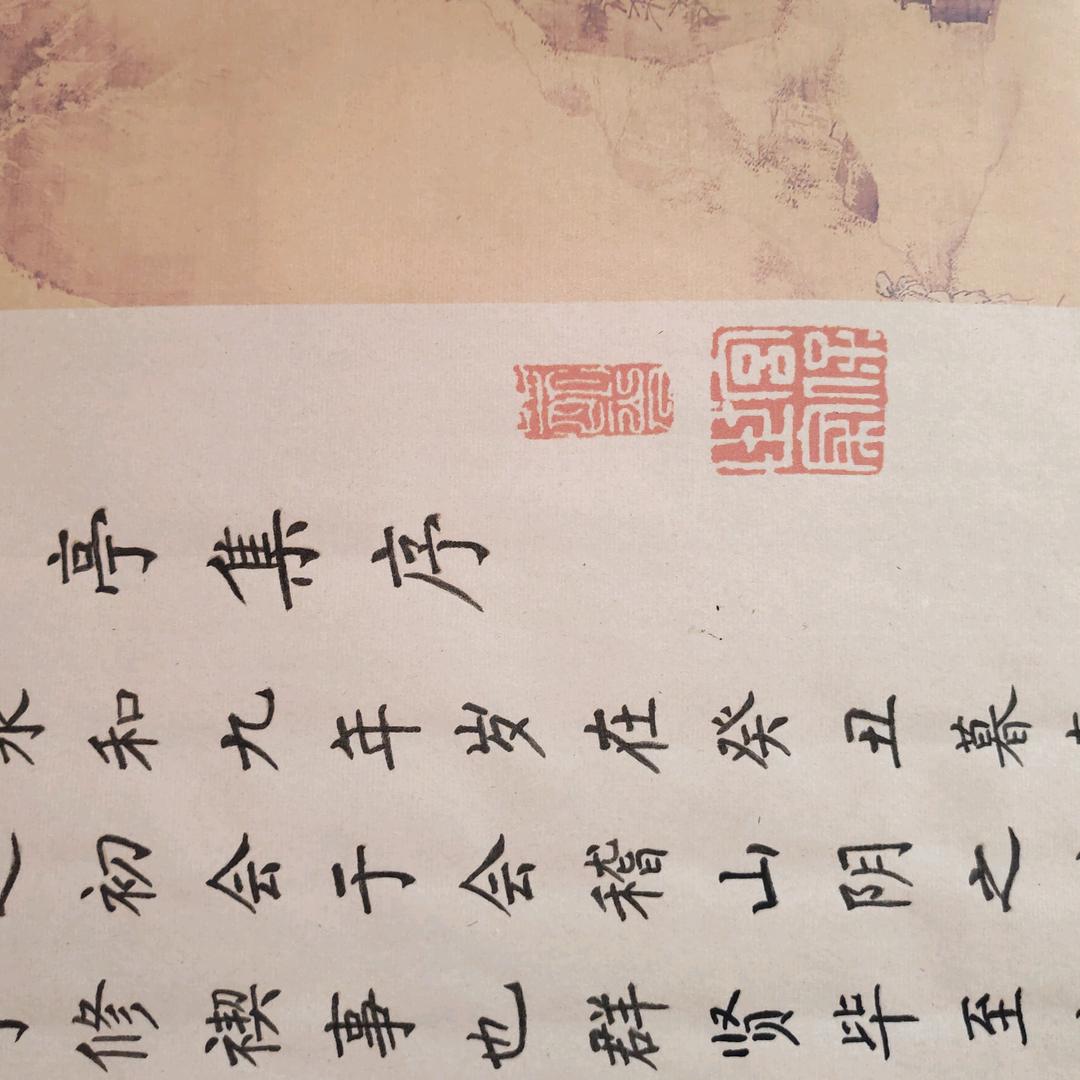 亭集序
永和九年岁在癸丑暮
初会于会稽山阴之
修禊事也群贤毕至